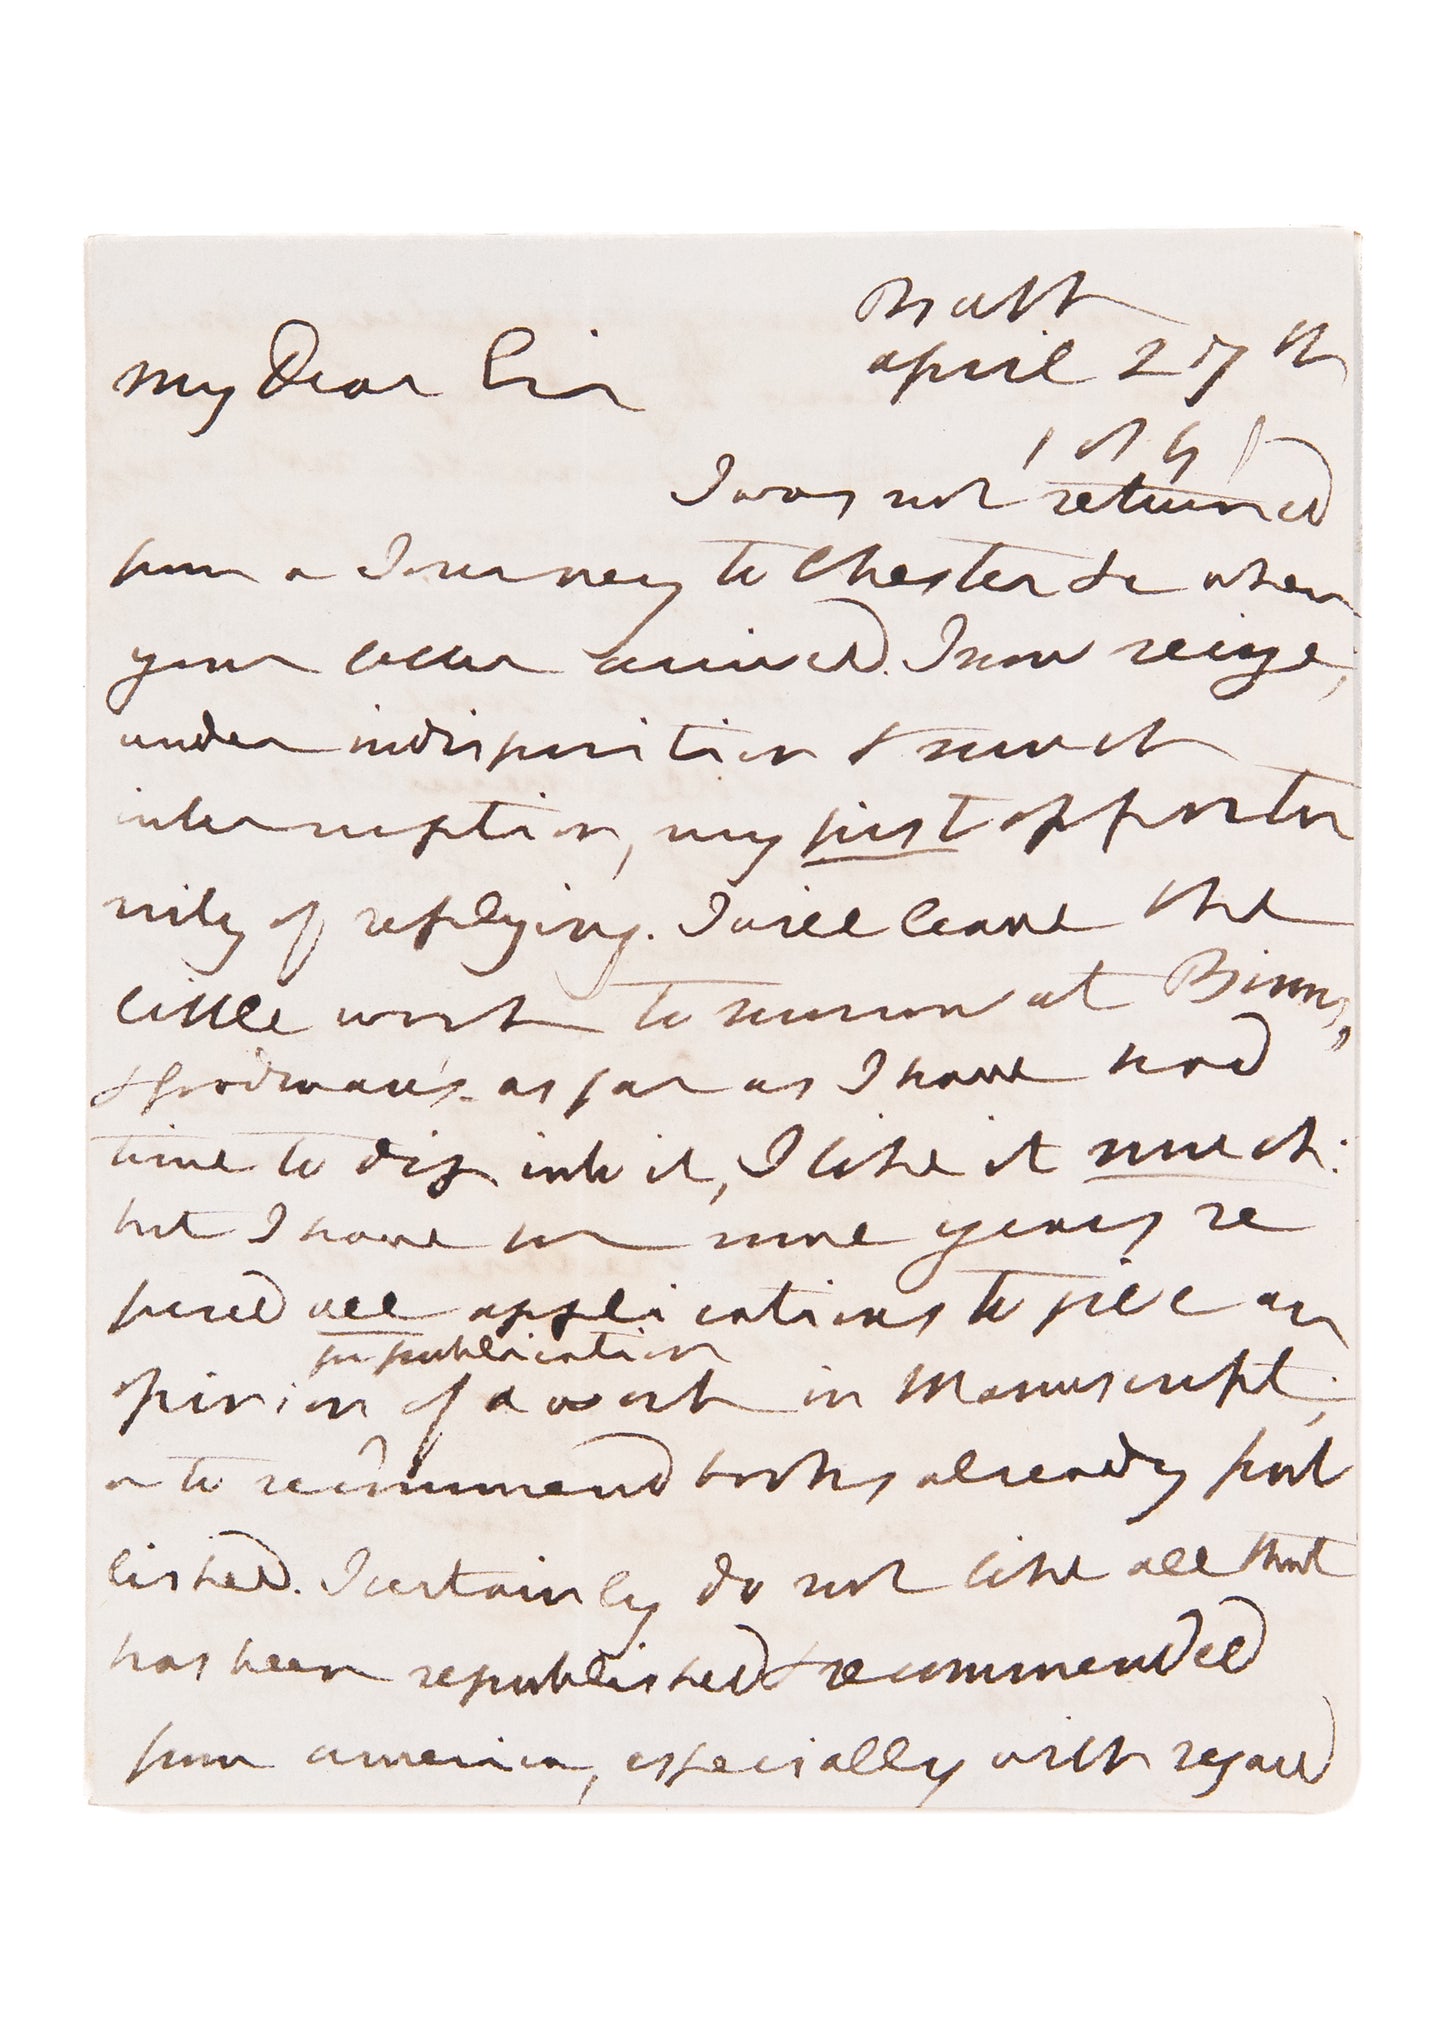 Bath
My Dear Sir april 27th
I was not returned
from a Journey to Chester &c when
your letter arrived. I now seize,
under indisposition & much
interruption, my first opportu
nity of replying. I will leave the
little work to morrow at Binns,
& Goodwin's. as far as I have had
time to dip into it, I like it much:
but I have for some years re
fused all applications to give an
for publication
opinion of a work in Manuscript,
or to recommend books already pub
lished. I certainly do not like all that
has been republished & recommended
from america, especially with regard